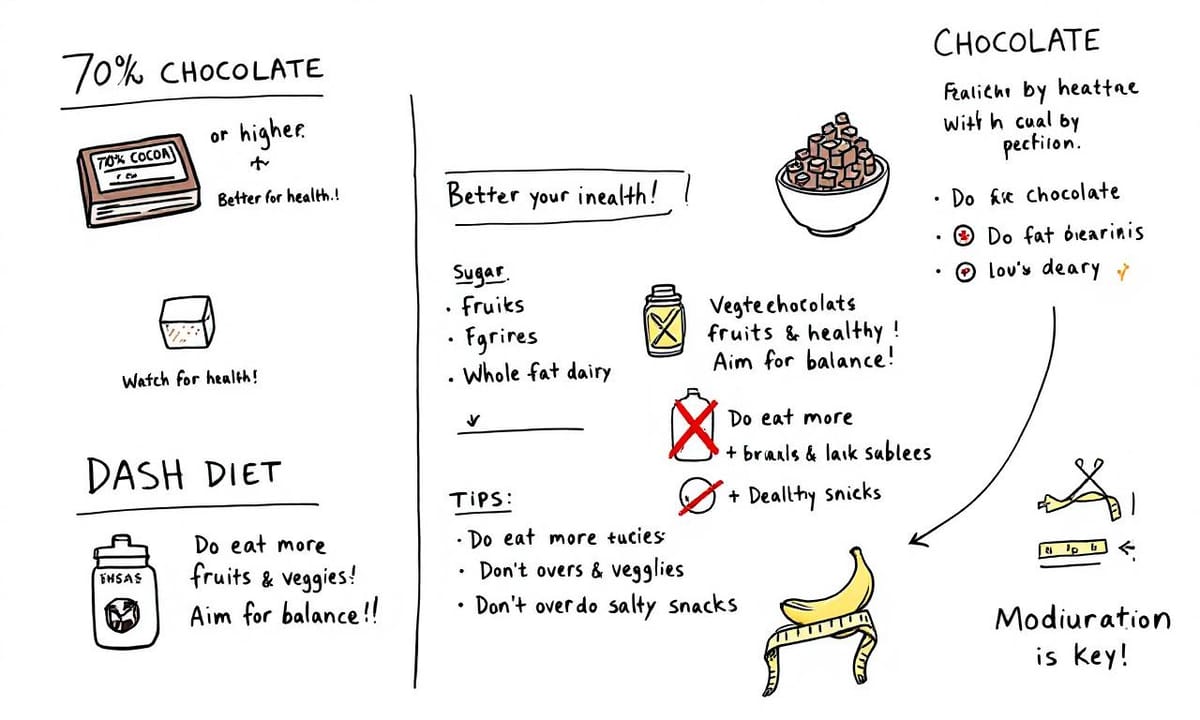 70% CHOCOLATE
70% COCOA
or higher.
Better for health.!
Watch for health!
DASH DIET
Do eat more
fruits & veggies!
Aim for balance!!
Better your inealth!
Sugar.
• Fruiks
• Fgrires
• Whole fat dairy
TIPS:
• Do eat more tucies
• Don't overs & vegglies
• Don't overdo salty snacks
Vegte chocolats
fruits & healthy!
Aim for balance!
Do eat more
+ & laik sablees
+ Deallhy snicks
CHOCOLATE
by heattne
With cual by
pectilon.
• Do chocolate
• Do fat
• lov's deary
Modiuration
is key!